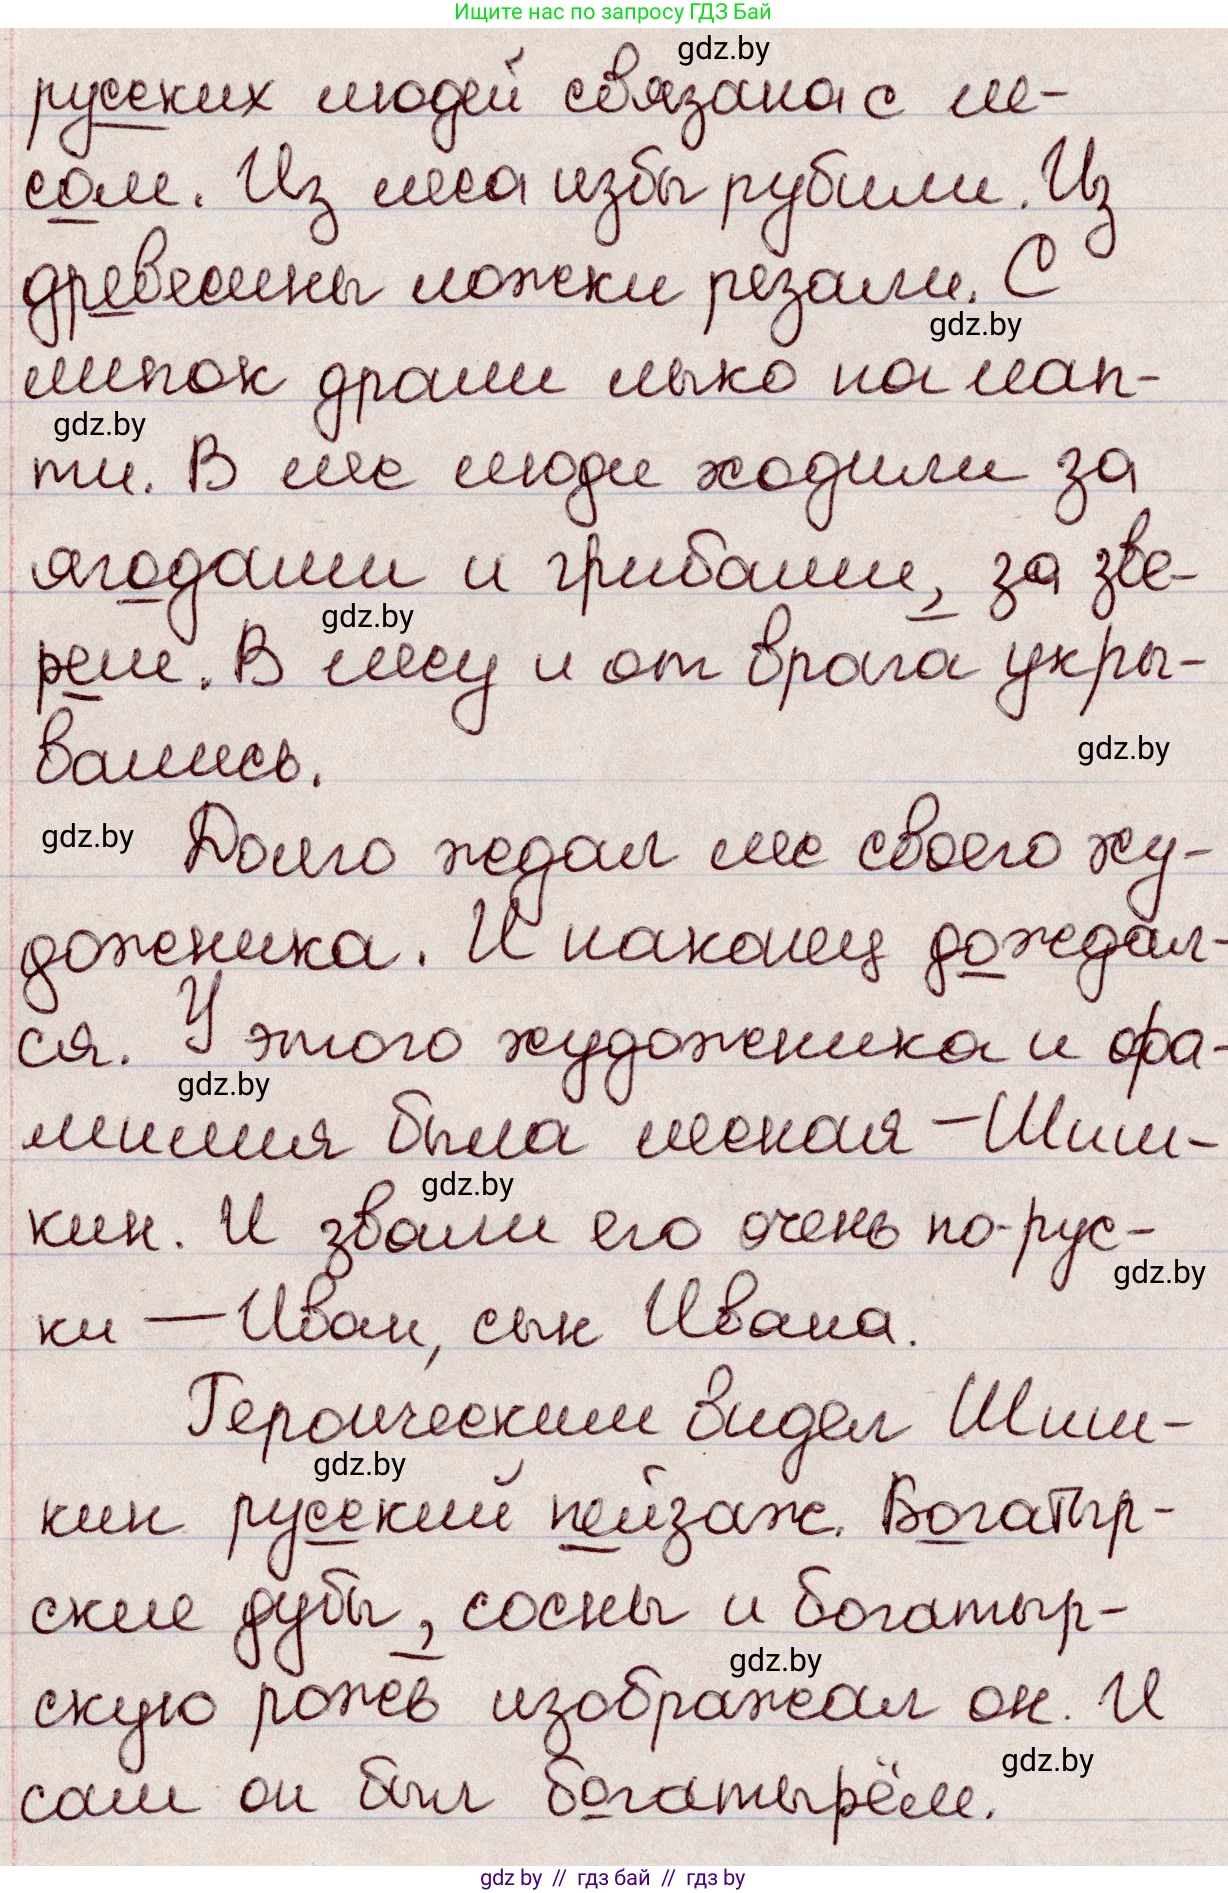 Ищите нас по запросу ГДЗ Бай
gdz.by
русских людей связана с ле-
сом. Из леса избы рубили. Из
древесины ложки резали. С
gdz.by
липок драли лыко на лап-
gdz.by
ти. В лес люди ходили за
ягодами и грибами, за зве-
gdz.by
рем. В лесу и от врага укры-
вались.
gdz.by
gdz.by
Долго ждал лес своего ху-
дожника. И наконец дождал-
ся. У этого художника и фа-
gdz.by
милия была лесная – Шиш-
gdz.by
кин. И звали его очень по-рус-
gdz.by
ки — Иван, сын Ивана.
Героическим видел Шиш-
gdz.by
кин русский пейзаж. Богатыр-
ские дубы, сосны и богатыр-
gdz.by
скую рожь изображал он. И
gdz.by
сам он был богатырём.
gdz.by // гдз бай // gdz.by